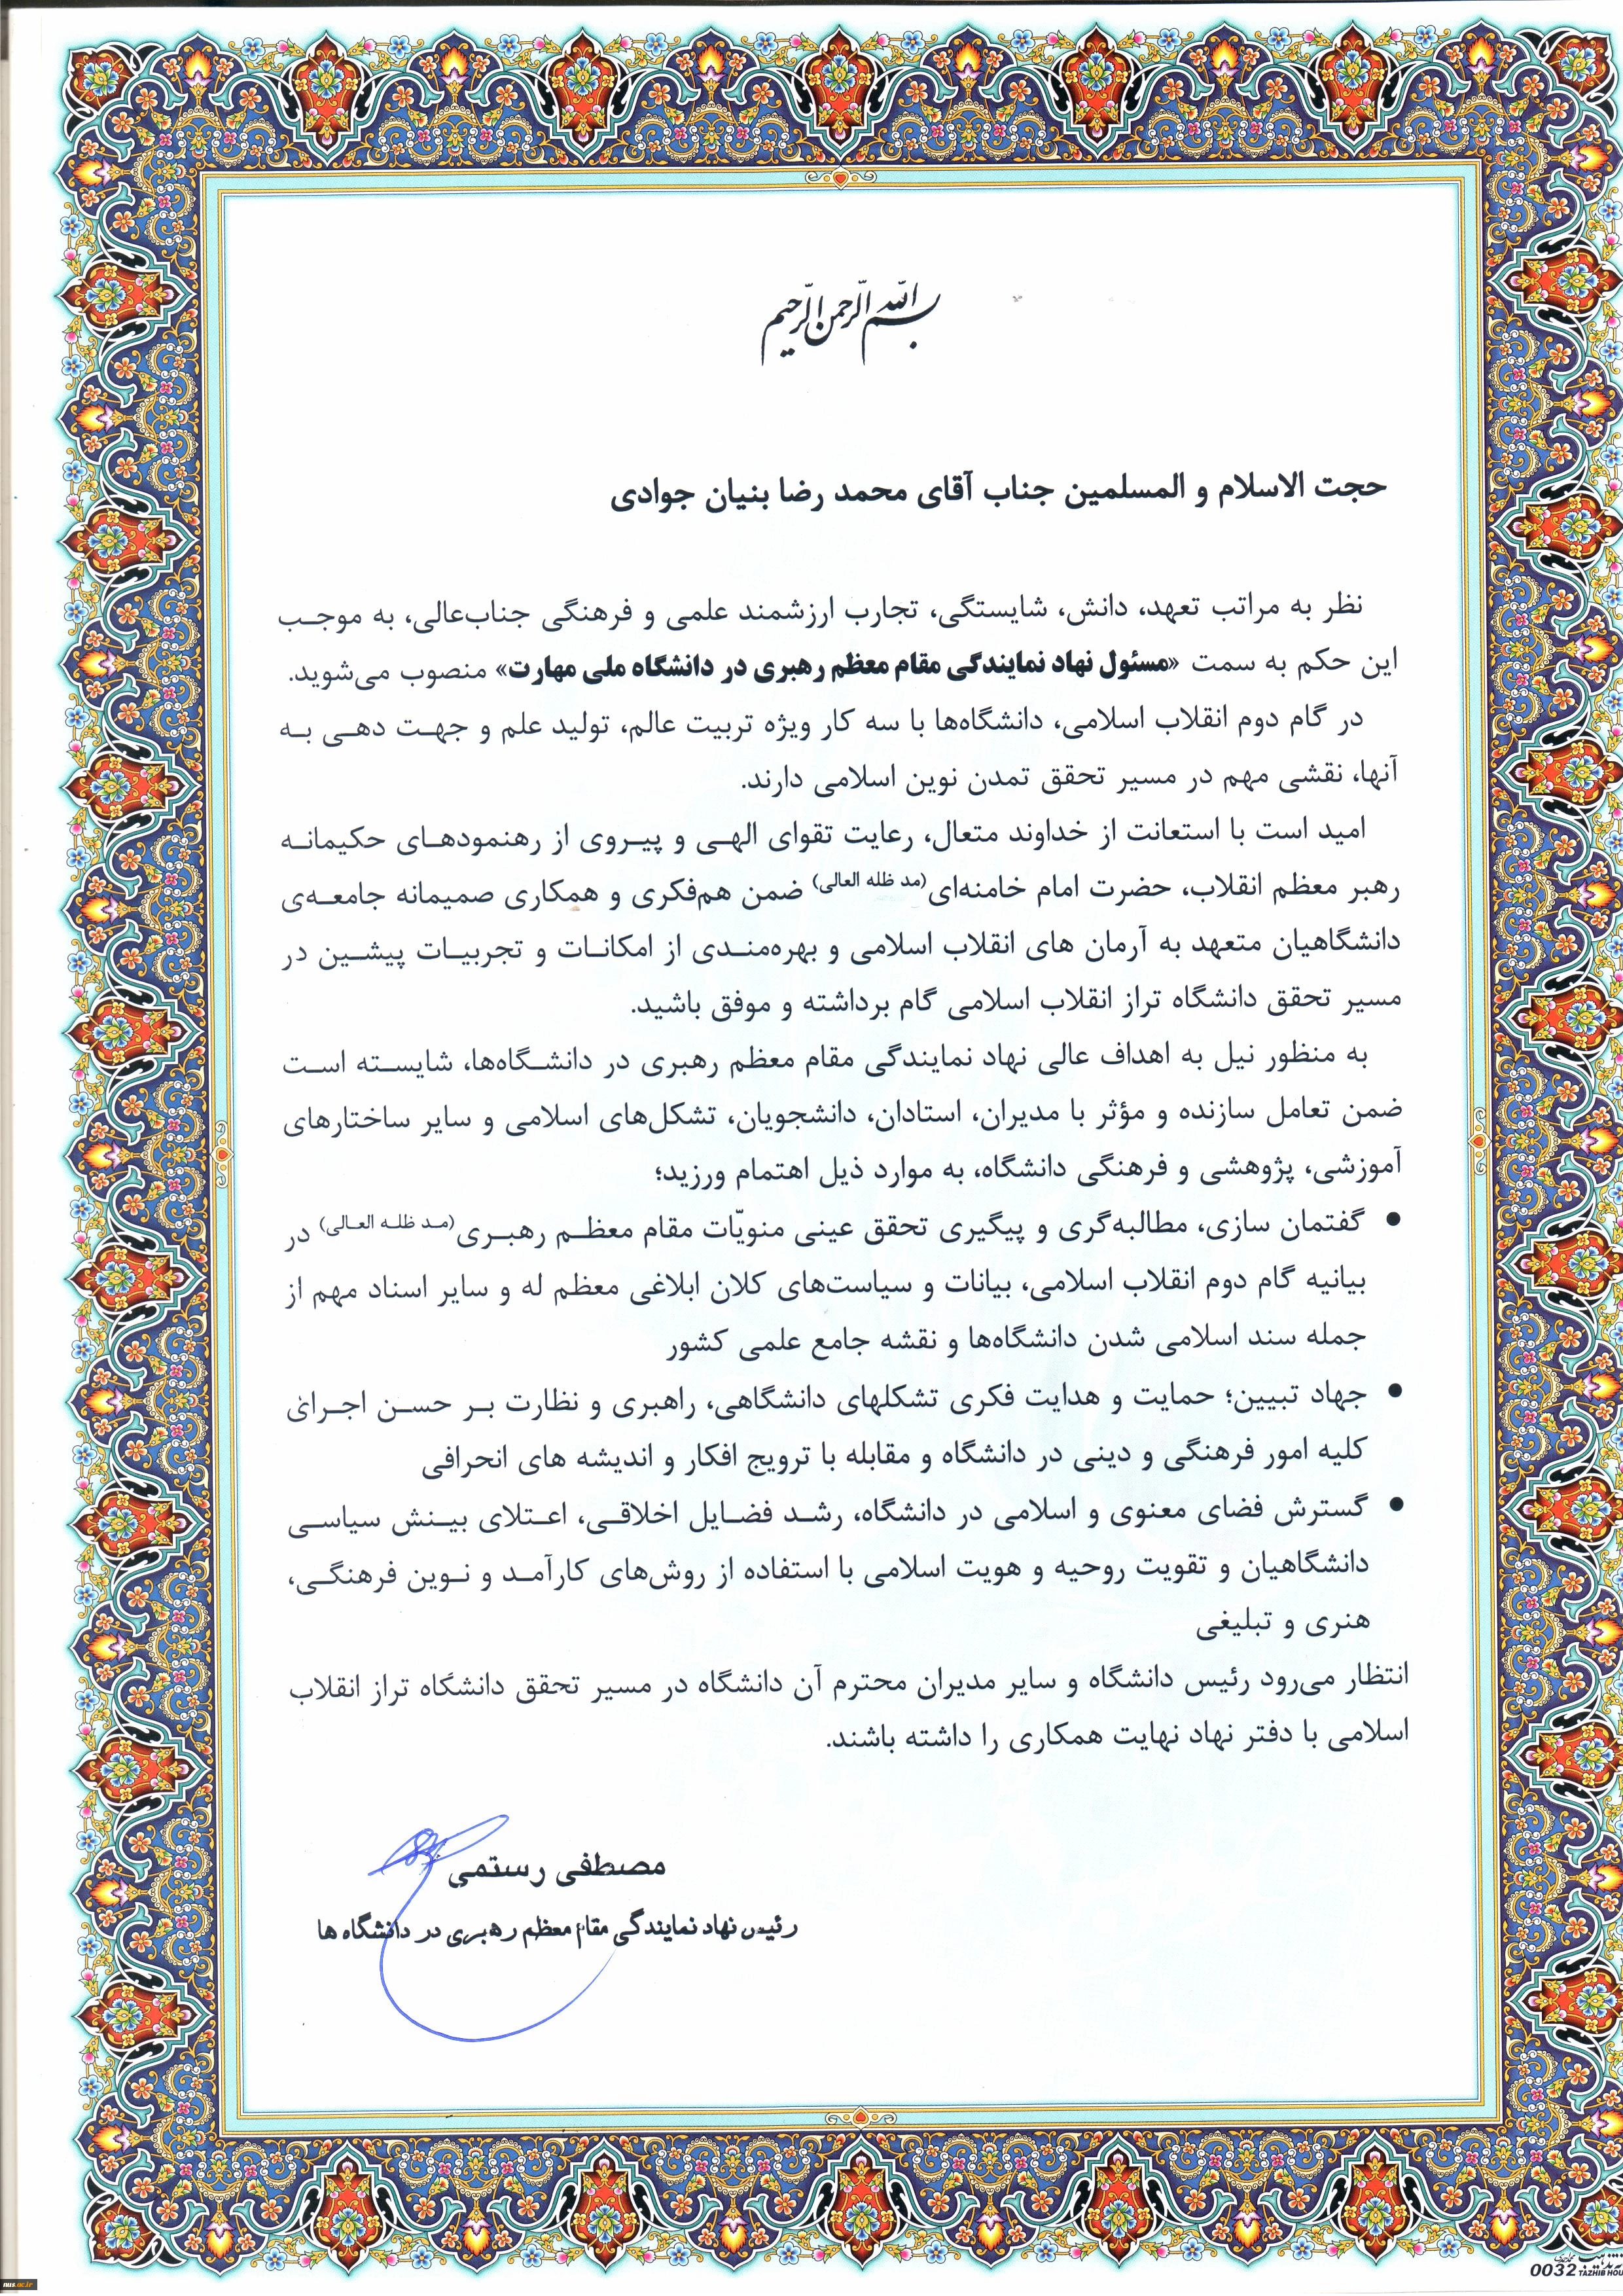 بسم الله الرحمن الرحیم
حجت الاسلام و المسلمین جناب آقای محمد رضا بنیان جوادی
نظر به مراتب تعهد، دانش، شایستگی، تجارب ارزشمند علمی و فرهنگی جناب‌عالی، به موجـب
این حکم به سمت «مسئول نهاد نمایندگی مقام معظم رهبری در دانشگاه ملی مهارت» منصوب می‌شوید.
در گام دوم انقلاب اسلامی، دانشگاه‌ها با سه کار ویژه تربیت عالم، تولید علم و جهـت دهـی بـه
آنها، نقشی مهم در مسیر تحقق تمدن نوین اسلامی دارند.
امید است با استعانت از خداوند متعال، رعایت تقوای الهـی و پیـروی از رهنمودهـای حکیمانـه
رهبر معظم انقلاب، حضرت امام خامنه‌ای(مد ظله العالی) ضمن هم‌فکری و همکاری صمیمانه جامعـه‌ی
دانشگاهیان متعهد به آرمان های انقلاب اسلامی و بهره‌منـدی از امکانـات و تجربیـات پیشـین در
مسیر تحقق دانشگاه تراز انقلاب اسلامی گام برداشته و موفق باشید.
به منظور نیل به اهداف عالی نهاد نمایندگی مقام معظم رهبری در دانشـگاه‌ها، شایسـته اسـت
ضمن تعامل سازنده و مؤثر با مدیران، استادان، دانشجویان، تشکل‌های اسلامی و سایر ساختارهای
آموزشی، پژوهشی و فرهنگی دانشگاه، به موارد ذیل اهتمام ورزید؛
● گفتمان سازی، مطالبه‌گری و پیگیری تحقق عینی منویّات مقام معظـم رهبـری(مـد ظلـه العـالی) در
بیانیه گام دوم انقلاب اسلامی، بیانات و سیاست‌های کلان ابلاغی معظم له و سایر اسناد مهم از
جمله سند اسلامی شدن دانشگاه‌ها و نقشه جامع علمی کشور
● جهاد تبیین؛ حمایت و هدایت فکری تشکلهای دانشگاهی، راهبری و نظارت بـر حسـن اجـرای
کلیه امور فرهنگی و دینی در دانشگاه و مقابله با ترویج افکار و اندیشه های انحرافی
● گسترش فضای معنوی و اسلامی در دانشگاه، رشـد فضـایل اخلاقـی، اعـتلای بیـنش سیاسـی
دانشگاهیان و تقویت روحیه و هویت اسلامی با استفاده از روش‌های کارآمـد و نـوین فرهنگـی،
هنری و تبلیغی
انتظار می‌رود رئیس دانشگاه و سایر مدیران محترم آن دانشگاه در مسیر تحقق دانشگاه تراز انقلاب
اسلامی با دفتر نهاد نهایت همکاری را داشته باشند.
مصطفی رستمی
رئیس نهاد نمایندگی مقام معظم رهبری در دانشگاه ها
0032
nus.ac.ir